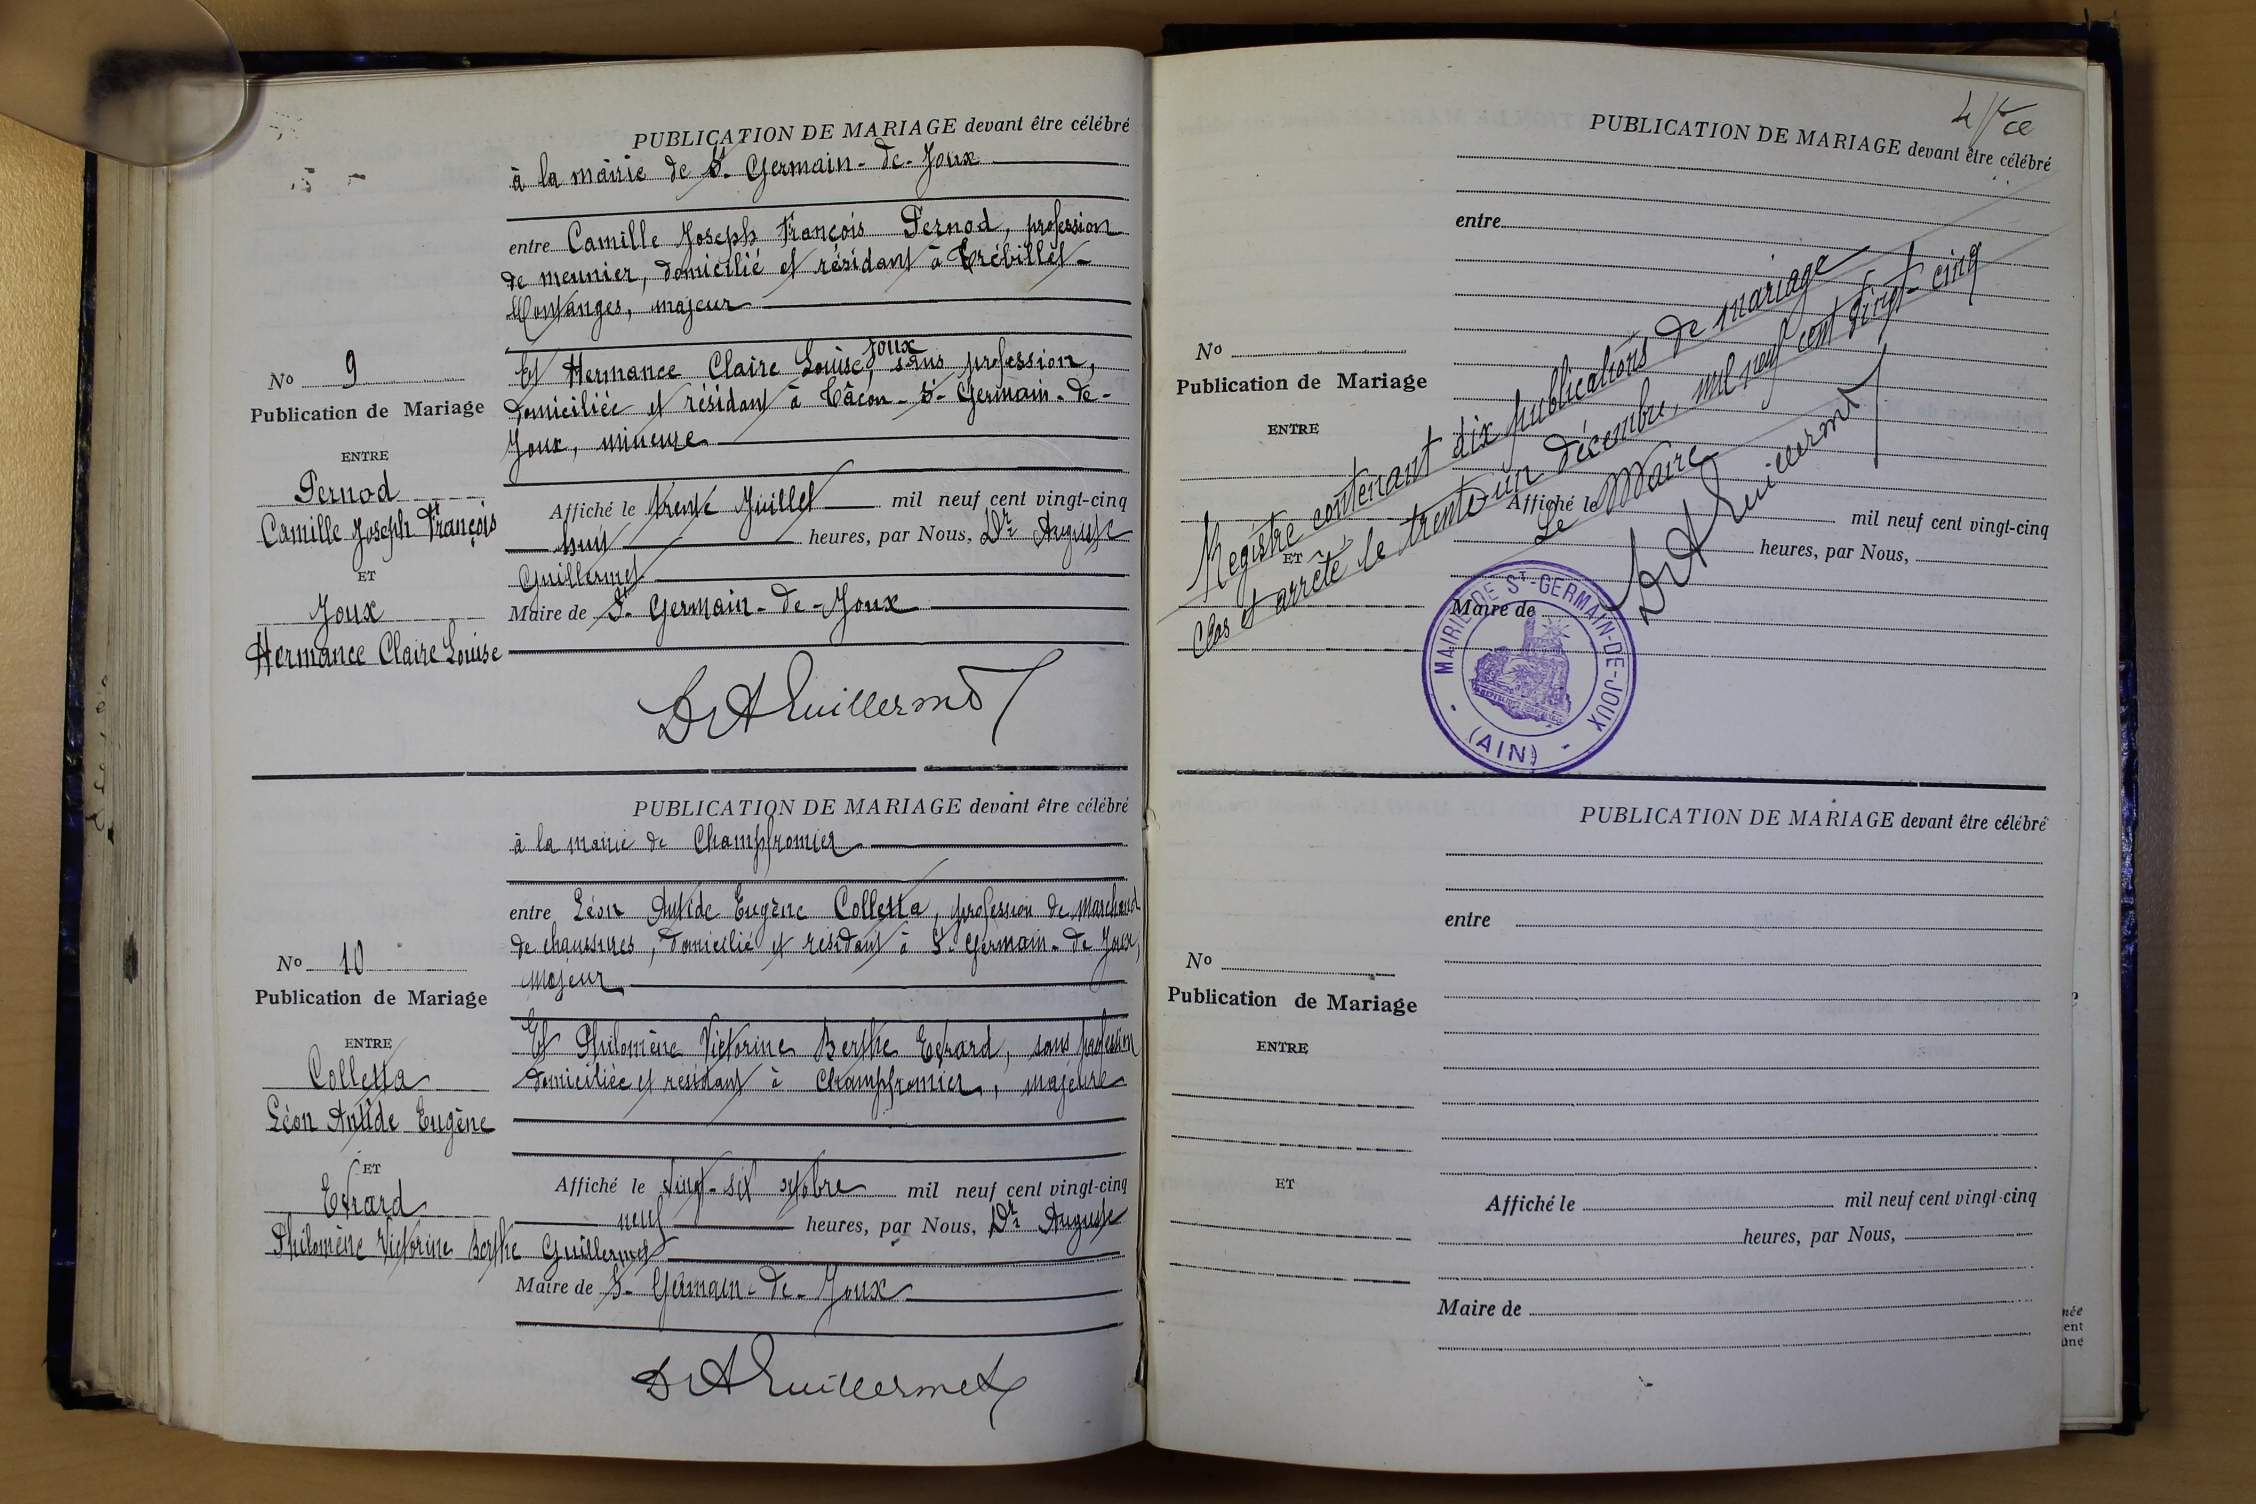 PUBLICATION DE MARIAGE devant être célébré
à la mairie de St. Germain-de-Joux
entre Camille Joseph François Pernod, profession
de meunier, domicilié et résidant à Trébillet-
Montanges, majeur
Et Hermance Claire Louise, Joux sans profession,
domiciliée et résidant à Tâcon-St-Germain-de-
Joux, mineure
No 9
Publication de Mariage
ENTRE
Pernod
Camille Joseph François
ET
Joux
Hermance Claire Louise
Affiché le trente Juillet mil neuf cent vingt-cinq
huit heures, par Nous, Dr Auguste
Guillermet
Maire de St. Germain-de-Joux
Dr A Guillermet
PUBLICATION DE MARIAGE devant être célébré
à la mairie de Champfromier
entre Léon Antide Eugène Colletta, profession de marchand
de chaussures, domicilié et résidant à St-Germain-de Joux,
majeur
Et Philomène Victorine Berthe Evrard, sans profession
domiciliée et résidant à Champfromier, majeure
No 10
Publication de Mariage
ENTRE
Colletta
Léon Antide Eugène
ET
Evrard
Philomène Victorine Berthe
Affiché le vingt-six octobre mil neuf cent vingt-cinq
neuf heures, par Nous, Dr Auguste
Guillermet
Maire de St-Germain-de-Joux
Dr A Guillermet
PUBLICATION DE MARIAGE devant être célébré
entre
No
Publication de Mariage
ENTRE
ET
Registre contenant dix publications de mariage
Clos et arrêté le trente-un décembre, mil neuf cent vingt-cinq
Le Maire
Dr A Guillermet
Affiché le mil neuf cent vingt-cinq
heures, par Nous,
Maire de
MAIRIE DE St-GERMAIN-DE-JOUX
(AIN)
PUBLICATION DE MARIAGE devant être célébré
entre
No
Publication de Mariage
ENTRE
ET
Affiché le mil neuf cent vingt-cinq
heures, par Nous,
Maire de